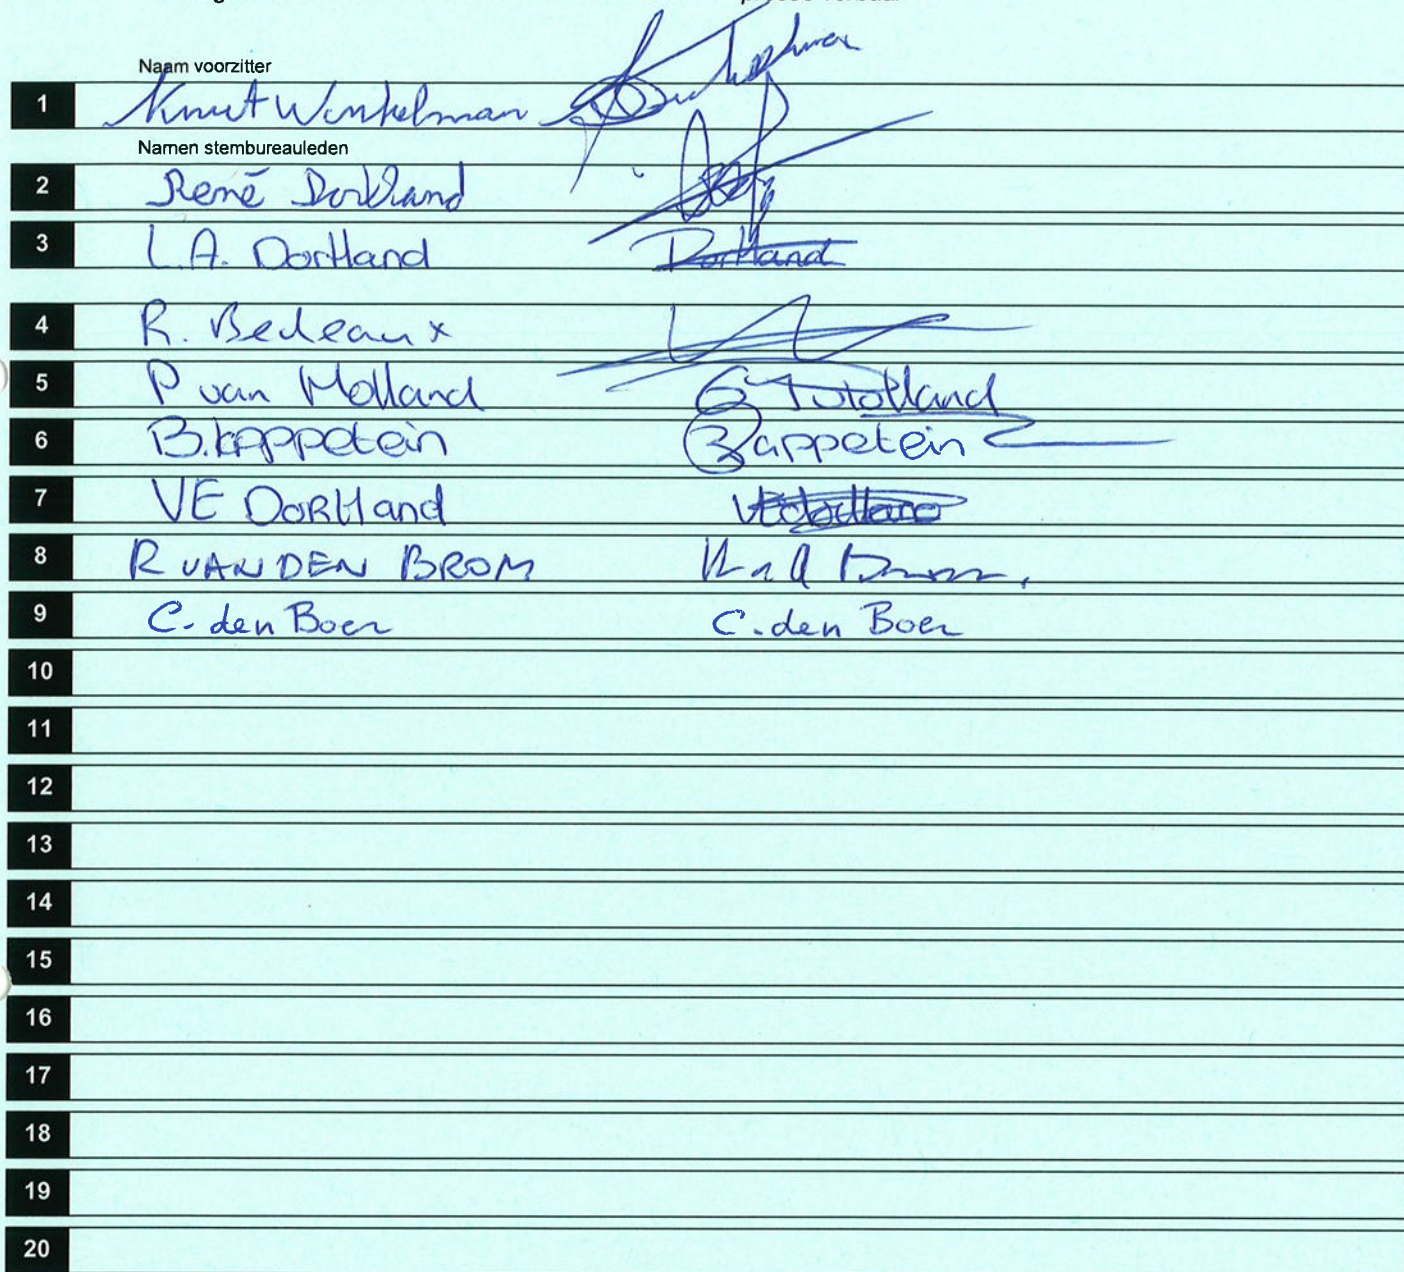 Naam voorzitter
1 Knut Winkelman
Namen stembureauleden
2 René Dortland
3 L.A. Dortland Dortland
4 R. Bedeaux
5 P van Holland
6 B. Kappetein Bappetein
7 VE Dortland
8 R VAN DEN BROM
9 C. den Boer C. den Boer
10
11
12
13
14
15
16
17
18
19
20